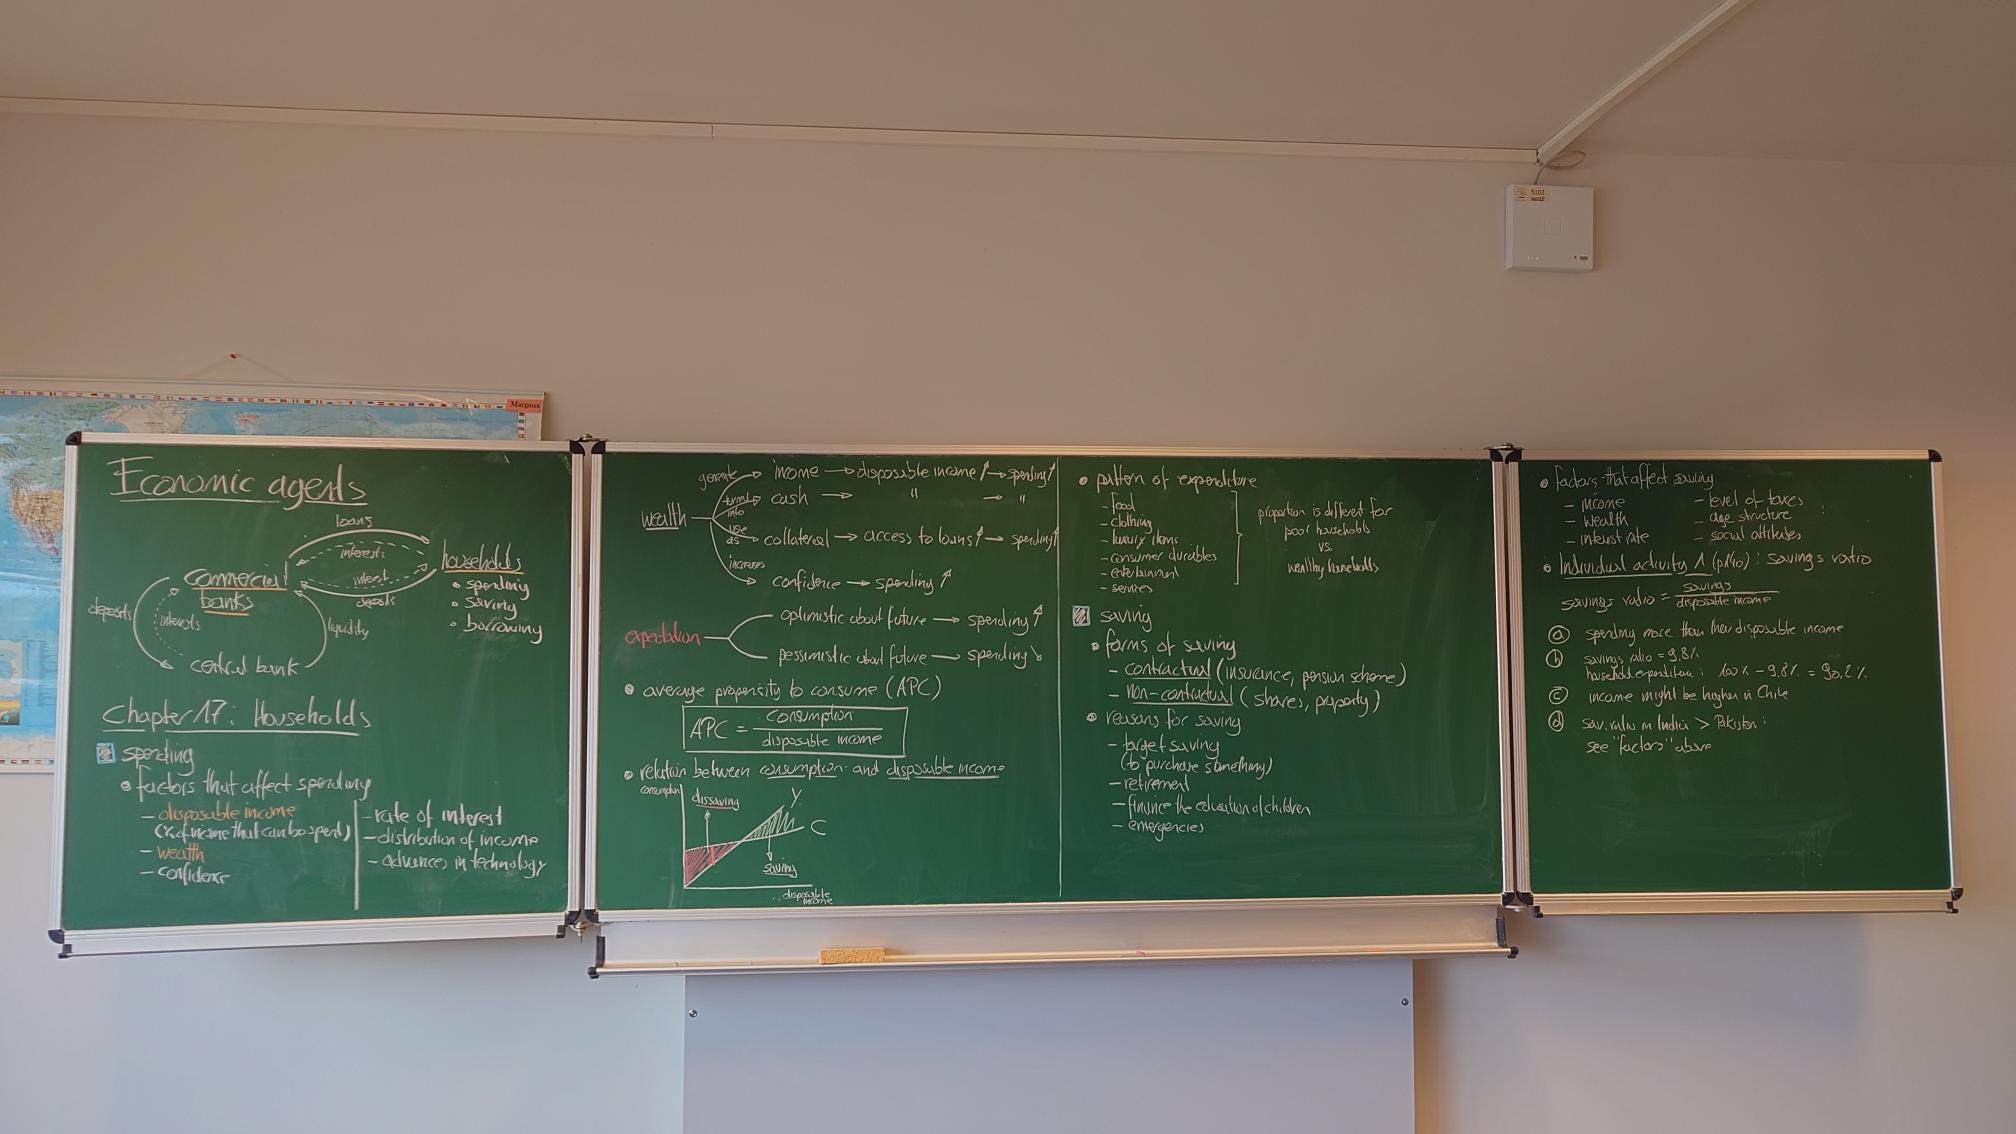 Margaux
5102
Economic agents
loans
interests
households
interest
deposits
commercial
banks
• spending
• saving
• borrowing
deposits
interests
liquidity
central bank
Chapter 17: Households
spending
• factors that affect spending
- disposable income
(% of income that can be spent)
- wealth
- confidence
- rate of interest
- distribution of income
- advances in technology
wealth
generate income → disposable income ↑ → spending ↑
turned into cash → " → "
use as collateral → access to loans ↑ → spending ↑
increases confidence → spending ↑
expectation
optimistic about future → spending ↑
pessimistic about future → spending ↘
• average propensity to consume (APC)
APC = consumption
disposable income
• relation between consumption and disposable income
consumption
dissaving
Y
C
saving
disposable
income
• pattern of expenditure
- food
- clothing
- luxury items
- consumer durables
- entertainment
- services
proportion is different for
poor households
vs.
wealthy households
saving
• forms of saving
- contractual (insurance, pension scheme)
- non-contractual (shares, property)
• reasons for saving
- target saving
(to purchase something)
- retirement
- finance the education of children
- emergencies
• factors that affect saving
- income
- wealth
- interest rate
- level of taxes
- age structure
- social attitudes
• Individual activity 1 (p140): savings ratio
savings ratio = savings
disposable income
a spending more than their disposable income
b savings ratio = 9,8%
household expenditure: 100% - 9,8% = 90,2%
c income might be higher in Chile
d sav. ratio in India > Pakistan:
see "factors" above